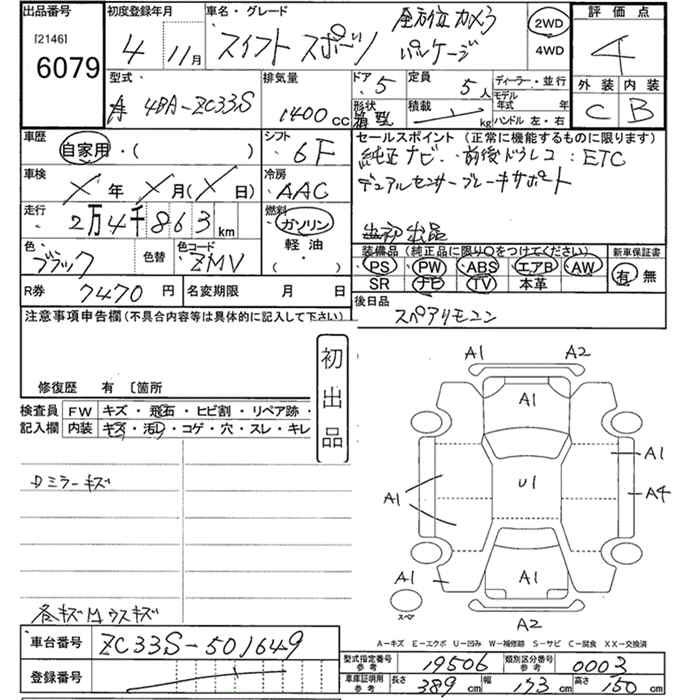 出品番号
[2146]
6079
初度登録年月
4年 11月
車名・グレード
スイフト スポーツ
全方位カメラ
パッケージ
2WD
4WD
評価点
4
外装 内装
C B
型式
4BA-ZC33S
排気量
1400 cc
ドア 5
形状
定員 5人
積載 kg
ディーラー・並行
モデル年式 年
ハンドル 左・右
車歴
自家用・( )
シフト
6F
車検
X年 X月(X日)
冷房
AAC
走行
2万4千863 km
燃料
ガソリン
軽油
( )
色
ブラック
色替
色コード
ZMV
R券 7470 円
名変期限 月 日
セールスポイント (正常に機能するものに限ります)
純正ナビ・前後ドラレコ:ETC
デュアルセンサーブレーキサポート
初出品
装備品 (純正品に限り○をつけてください)
PS PW ABS エアB AW
SR ナビ TV 本革
新車保証書
有 無
後日品
スペアリモコン
注意事項申告欄(不具合内容等は具体的に記入して下さい)
修復歴 有 〔箇所
初出品
検査員
記入欄
FW キズ・飛石・ヒビ割・リペア跡・
内装 キズ・汚レ・コゲ・穴・スレ・キレ
Dミラーキズ
各キズ凹ウスキズ
A1 A2
A1
A1
U1
A1
A4
A1
A1
A2
スペア
A-キズ E-エクボ U-凹み W-補修跡 S-サビ C-腐食 XX-交換済
車台番号 ZC33S-501649
登録番号
型式指定番号 参考 19506
類別区分番号 参考 0003
車庫証明用 参考
長さ 389 cm 幅 173 cm 高さ 150 cm